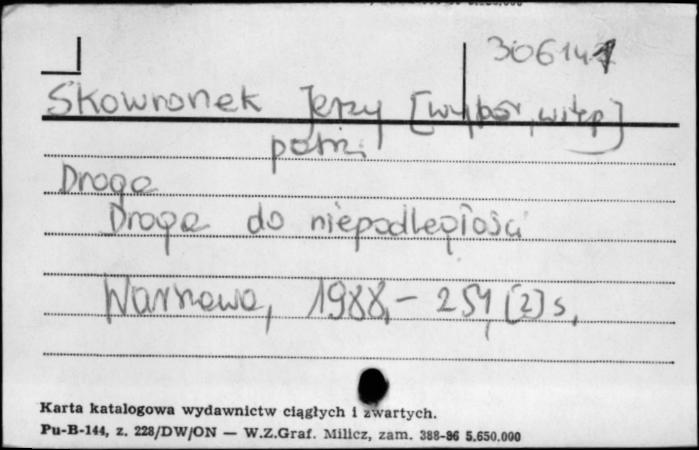 306141
Skowronek Jerzy [wybór, wstęp]
patrz
Droga
Droga do niepodległości
Warszawa, 1988, - 251, [2] s.
Karta katalogowa wydawnictw ciągłych i zwartych.
Pu-B-144, z. 228/DW/ON — W.Z.Graf. Milicz, zam. 388-86 5.650.000